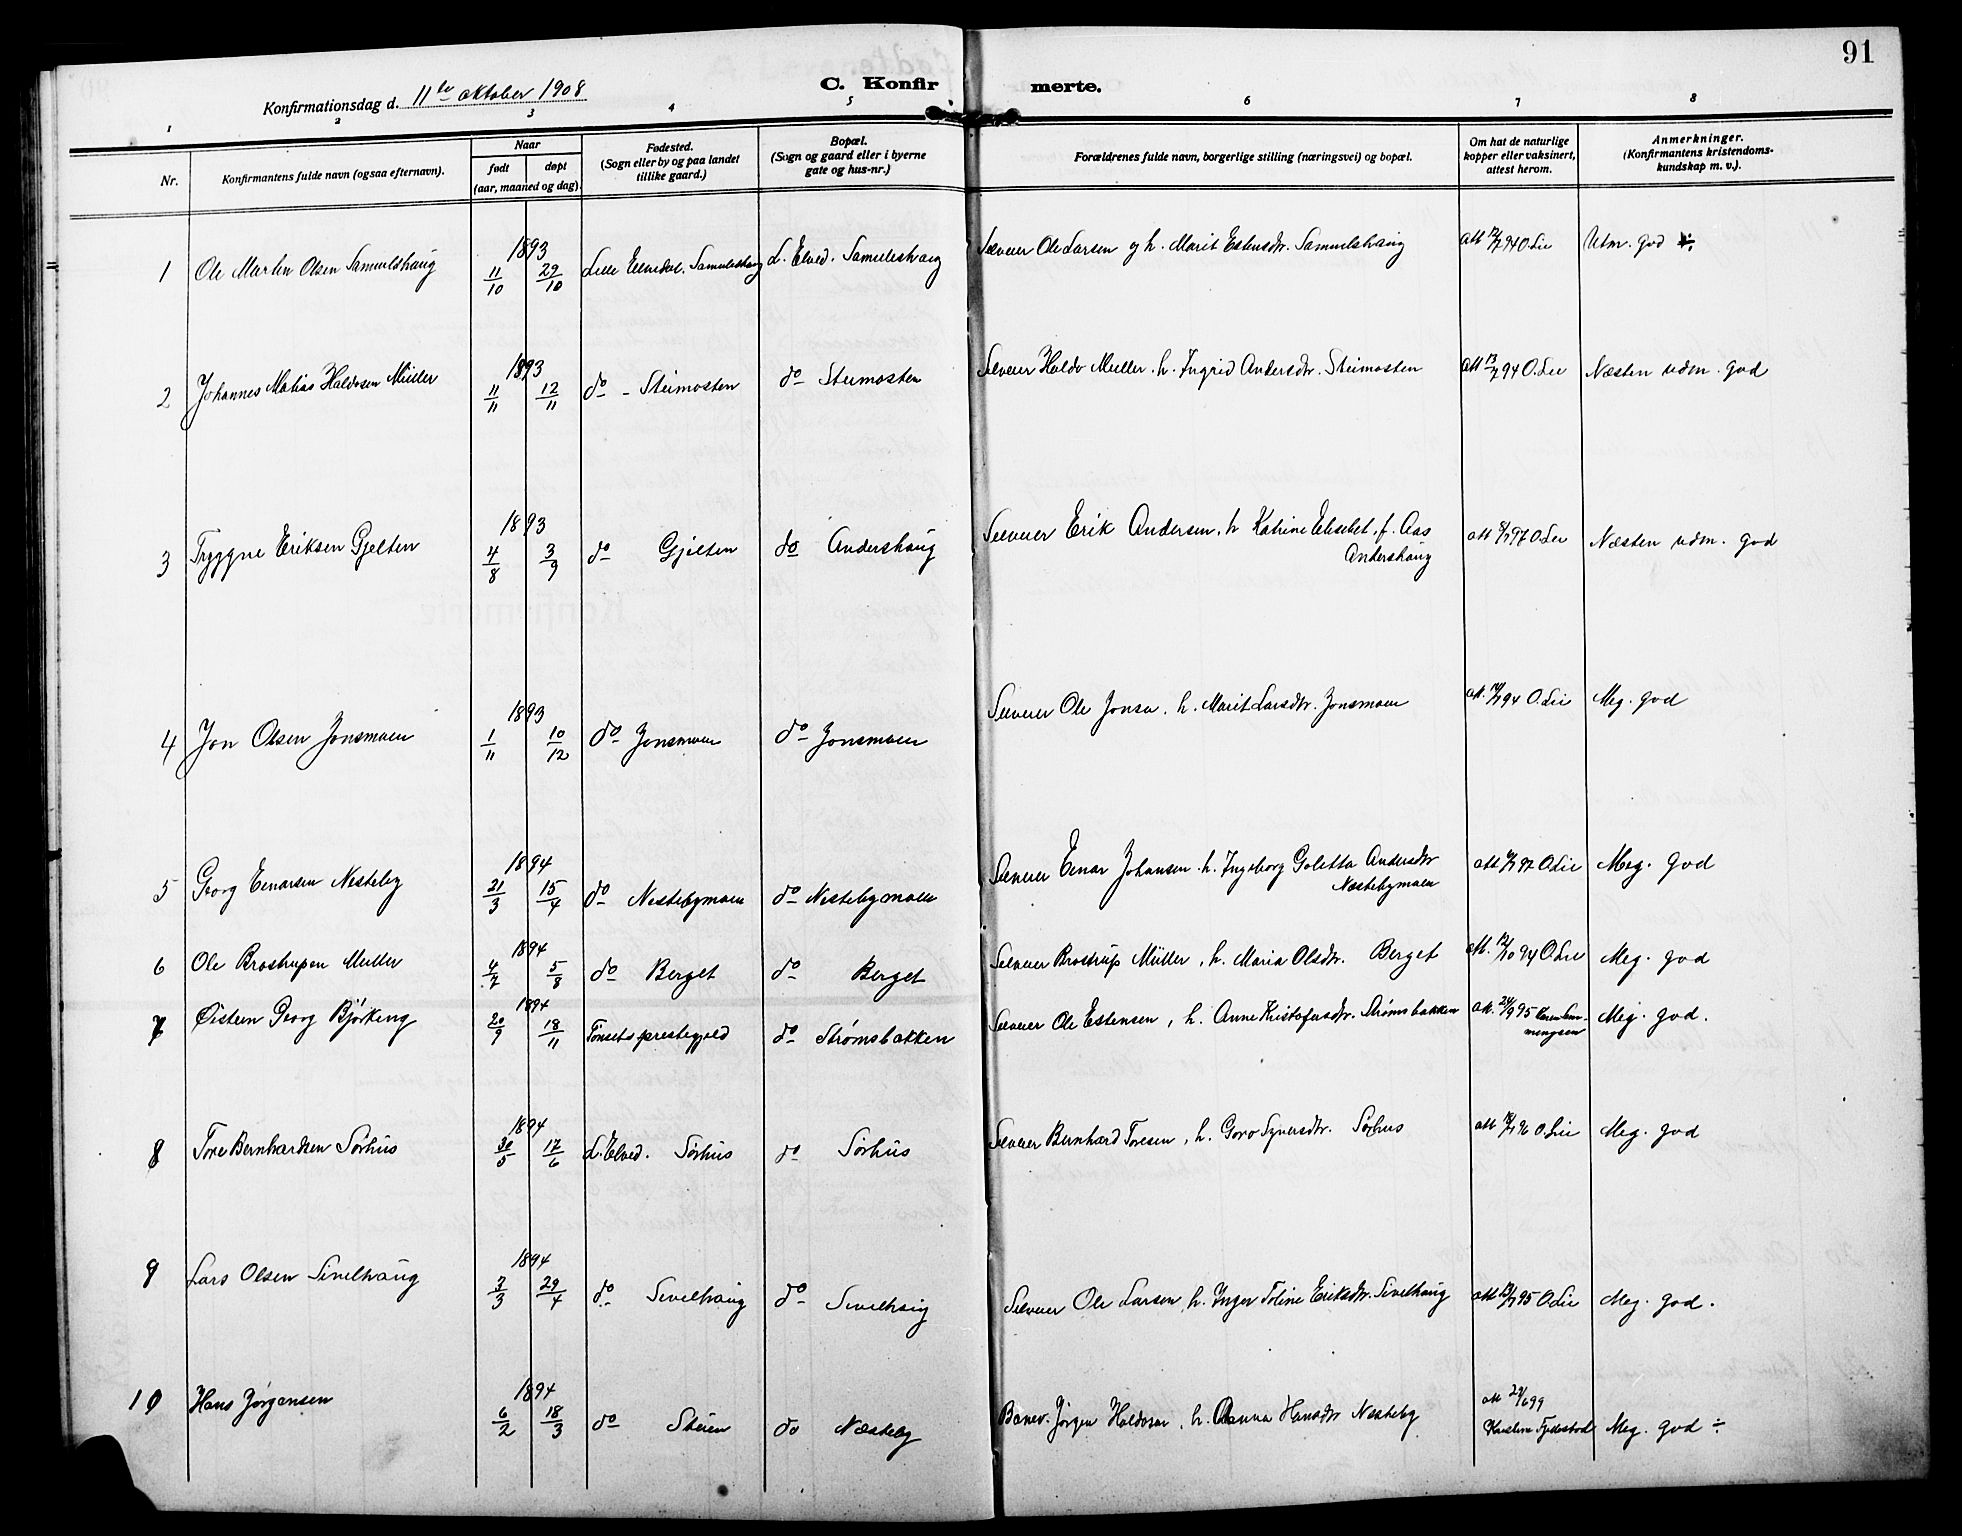 91
Konfirmationsdag d. 11te oktober 1908
C. Konfirmerte.
1 2 3 4 5 6 7 8
Nr.
Konfirmantens fulde navn (ogsaa efternavn).
Naar
født døpt
(aar, maaned og dag).
Fødested.
(Sogn eller by og paa landet
tillike gaard.)
Bopæl.
(Sogn og gaard eller i byerne
gate og hus-nr.)
Forældrenes fulde navn, borgerlige stilling (næringsvei) og bopæl.
Om hat de naturlige
kopper eller vaksinert,
attest herom.
Anmerkninger.
(Konfirmantens kristendoms-
kundskap m. v.).
1893
1 Ole Martin Olsen Samuelshaug 11/10 29/10 Lille Elvedal. Samuelshaug L. Elved. Samuelshaug Selveier Ole Larsen og h. Marit Estensdtr. Samuelshaug att 12/7 94 O. Lie Utm. god
1893
2 Johannes Matias Haldosen Müller 11/11 12/11 do - Steimosten do Steimosten Selveier Haldo Müller. h. Ingrid Andersdtr. Steimosten att 13/7 94 O. Lie Næsten udm. god
1893
3 Tryggve Eriksen Gjelten 4/8 3/9 do Gjelten do Andershaug Selveier Erik Andersen, h Katrine Elisebet, f. Aas att 8/7 97 O Lie Næsten udm. god
Andershaug
1893
4 Jon Olsen Jonsmoen 1/11 10/12 do Jonsmoen do Jonsmoen Selveier Ole Jonsa. h. Marit Larsdtr. Jonsmoen att. 14/7 94 O. Lie Meg. god
1894
5 Georg Einarsen Nesteby 21/3 15/4 do Nestebymoen do Nestebymoen Selveier Einar Johansen. h. Ingeborg Goletta Andersdtr att 6/7 97 O Lie Meg. god
Næstebymoen
1894
6 Ole Brostrupen Müller 4/7 5/8 do Berget do Berget Selveier Brostrup Müller, h. Maria Olsdtr. Berget att. 12/10 94 O Lie Meg. god
1894
7 Øistein Georg Bjørking 20/9 18/11 Tønsets prestegjeld do Strømsbakken Selveier Ole Estensen, h. Anne Kristofersdtr. Strømsbakken att. 24/9 95 Meg. god.
1894
8 Tore Bernhardsen Sørhus 30/5 17/6 L. Elved. Sørhus do Sørhus Selveier Bernhard Toresen, h. Goro Syversdtr. Sørhus att 14/7 96 O. Lie Meg. god
1894
9 Lars Olsen Sivelhaug 3/3 29/4 do Sivilhaug do Sivilhaug Selveier Ole Larsen, h. Inger Toline Eriksdtr. Sivilhaug att 13/7 95 O Lie Meg. god.
1894
10 Hans Jørgensen 6/2 18/3 do Steien do Næsteby Banev. Jørgen Haldosen, h. Anna Hansdtr Nesteby att 29/6 99 Meg. god ÷